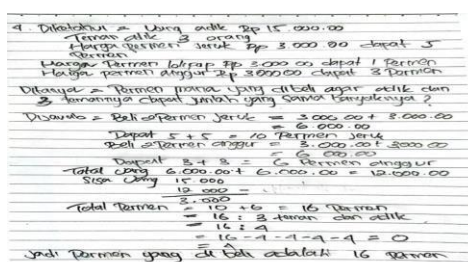 4. Diketahui = Uang adik Rp 15.000.00
Teman adik 3 orang
Harga permen jeruk Rp 3.000.00 dapat 5
Permen
Harga Permen lolipop Rp 3.000.00 dapat 1 Permen
Harga permen anggur Rp 3.000.00 dapat 3 Permen
Ditanya = Permen mana yang dibeli agar adik dan
3 temannya dapat jumlah yang sama banyaknya ?
Dijawab = Beli 2 Permen jeruk = 3.000.00 + 3.000.00
= 6.000.00
Dapat 5 + 5 = 10 Permen jeruk
Beli 2 Permen anggur = 3.000.00 + 3.000.00
= 6.000.00
Dapat 3 + 3 = 6 Permen anggur
Total uang 6.000.00 + 6.000.00 = 12.000.00
Sisa uang 15.000
12.000 -
3.000
Total Permen = 10 + 6 = 16 Permen
= 16 : 3 teman dan adik
= 16 : 4
= 16 - 4 - 4 - 4 - 4 = 0
= 4
Jadi Permen yang di beli adalah 16 permen